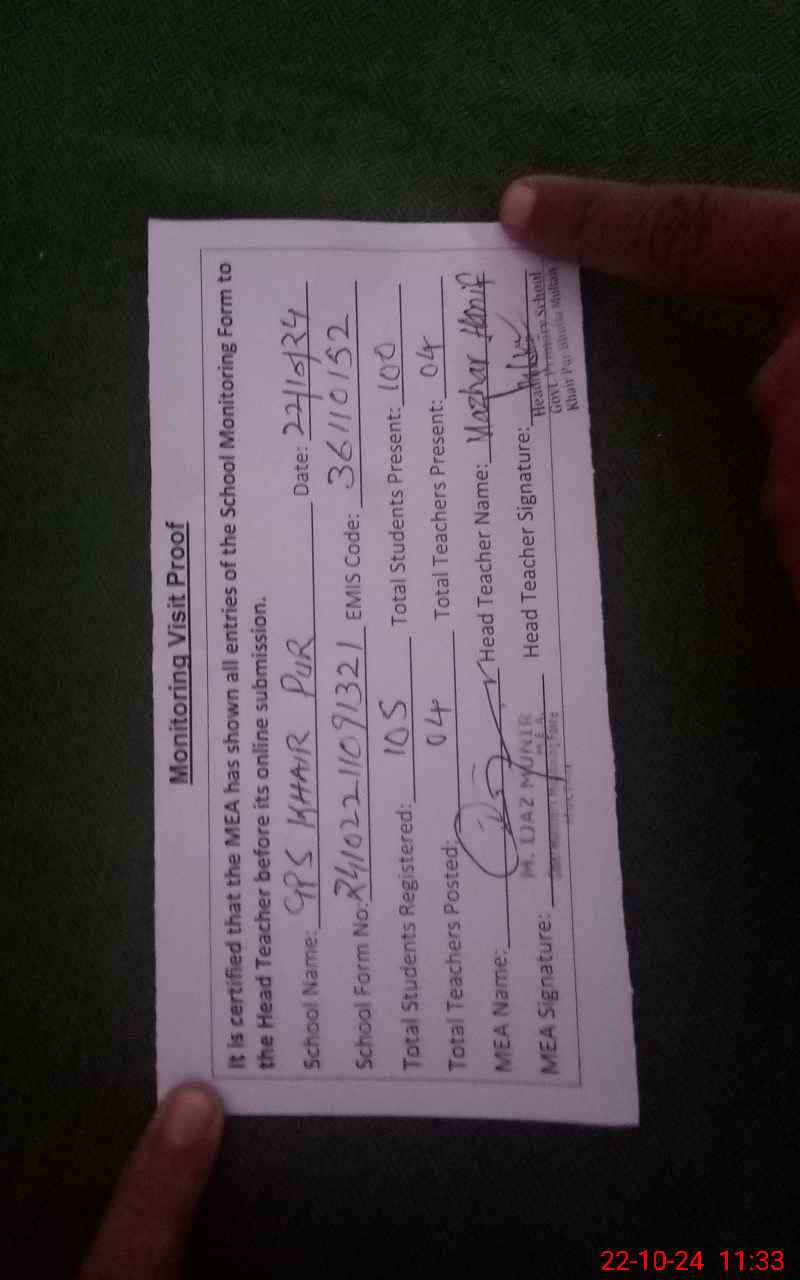 Monitoring Visit Proof
It is certified that the MEA has shown all entries of the School Monitoring Form to
the Head Teacher before its online submission.
School Name: GPS KHAIR PUR Date: 22/10/24
School Form No: 2410221091321 EMIS Code: 36110152
Total Students Registered: 105 Total Students Present: 100
Total Teachers Posted: 04 Total Teachers Present: 04
MEA Name: Head Teacher Name: Mazhar Hanif
MEA Signature: M. IJAZ MUNIR M.E.A. Head Teacher Signature:
Govt. Primary School
Khair Pur Bhutta Multan
22-10-24 11:33